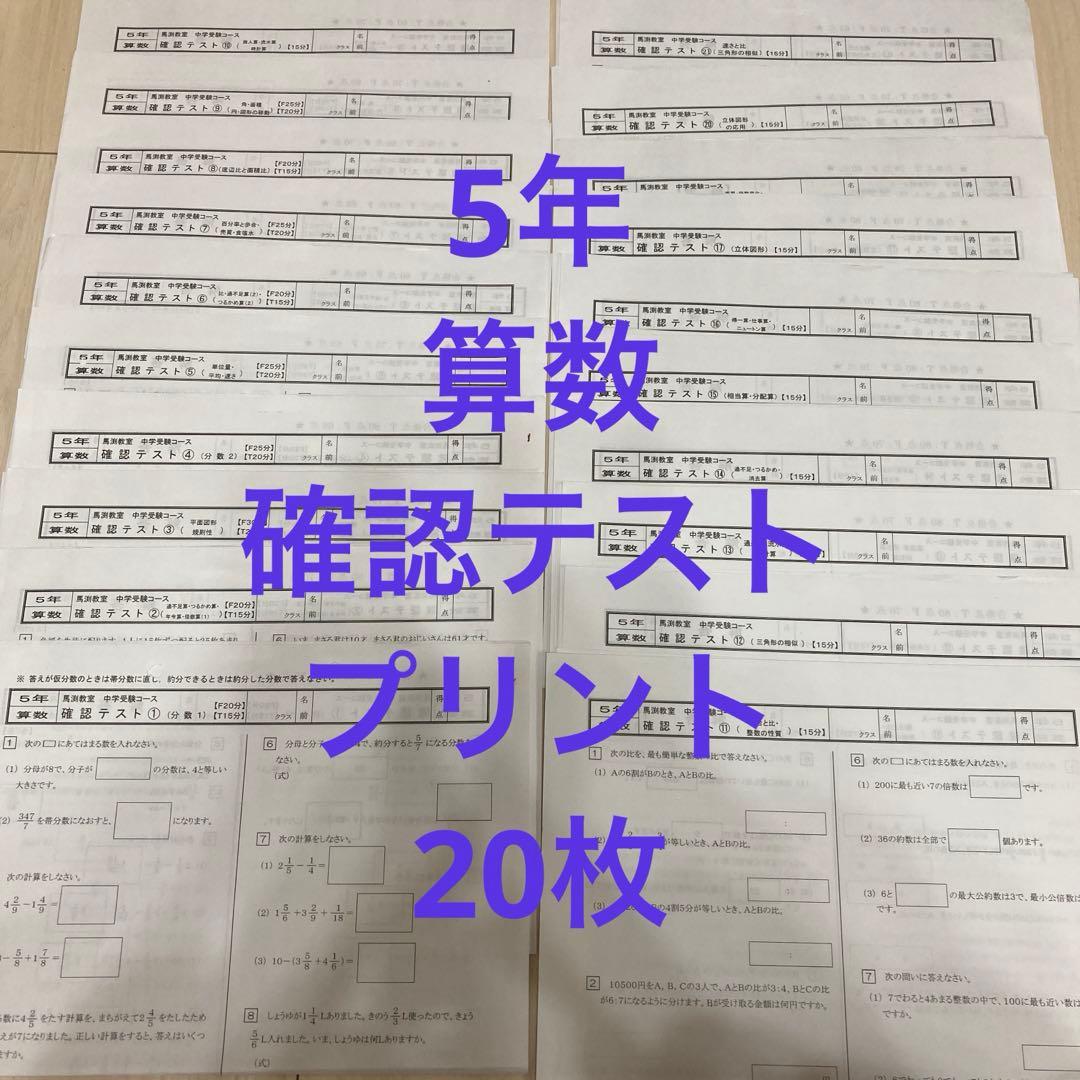 5年
算数
確認テスト
プリント
20枚
5年 馬渕教室 中学受験コース 名前 得点
算数 確認テスト⑩ 【15分】 クラス
5年 馬渕教室 中学受験コース 【F25分】 名前 得点
算数 確認テスト⑨ (角・面積 円・図形の移動) 【T20分】 クラス
5年 馬渕教室 中学受験コース 【F20分】 名前 得点
算数 確認テスト⑧ (底辺比と面積比) 【T15分】 クラス
5年 馬渕教室 中学受験コース 【F25分】 名前
算数 確認テスト⑦ (百分率と歩合・売買・食塩水) 【T20分】 クラス
5年 馬渕教室 中学受験コース 【F20分】 名前 得点
算数 確認テスト⑥ (比・過不足算(2)・つるかめ算(2)) 【T15分】 クラス
5年 馬渕教室 中学受験コース 【F25分】 名前
算数 確認テスト⑤ (単位量・平均・速さ) 【T20分】 クラス
5年 馬渕教室 中学受験コース 【F25分】 名前 得点
算数 確認テスト④ (分数2) 【T20分】 クラス
5年 馬渕教室 中学受験コース
算数 確認テスト③ (平面図形 規則性)
5年 馬渕教室 中学受験コース 【F20分】 名前 得点
算数 確認テスト② (過不足算・つるかめ算・年令算・倍数算(1)) 【T15分】 クラス
※ 答えが仮分数のときは帯分数に直し、約分できるときは約分した分数で答えなさい。
5年 馬渕教室 中学受験コース 【F20分】 名前 得点
算数 確認テスト① (分数1) 【T15分】 クラス
1 次の□にあてはまる数を入れなさい。
(1) 分母が8で、分子が の分数は、4と等しい
大きさです。
(2) 347/7 を帯分数になおすと、 になります。
次の計算をしなさい。
4 2/9 − 1 4/9 =
− 5/8 + 1 7/8 =
数に4 2/5 をたす計算を、まちがえて2 4/5 をたしたため
えが7になりました。正しい計算をすると、答えはいくつ
ますか。
6 分母と分子 4で、約分すると 5/7 になる分数を
なさい。
(式)
7 次の計算をしなさい。
(1) 2 1/5 − 1/4 =
(2) 1 5/6 + 3 2/9 + 1/18 =
(3) 10 − (3 5/8 + 4 1/6) =
8 しょうゆが1 1/4 Lありました。きのう 2/3 L使ったので、きょう
5/6 L入れました。いま、しょうゆは何Lありますか。
(式)
5年 馬渕教室 中学受験コース 名前 得点
算数 確認テスト㉑ (速さと比 三角形の相似) 【15分】 クラス
5年 馬渕教室 中学受験コース 名前 得点
算数 確認テスト⑳ (立体図形の応用) 【15分】 クラス
馬渕教室 中学受験コース
5年 馬渕教室 中学受験コース 名前 得点
算数 確認テスト⑰ (立体図形) 【15分】 クラス
5年 馬渕教室 中学受験コース 名前 得点
算数 確認テスト⑯ (帰一算・仕事算・ニュートン算) 【15分】 クラス
5年 馬渕教室 中学受験コース 名前 得点
算数 確認テスト⑮ (相当算・分配算) 【15分】 クラス
5年 馬渕教室 中学受験コース 名前 得点
算数 確認テスト⑭ (過不足・つるかめ・消去算) 【15分】 クラス
5年 馬渕教室 中学受験コース 名前 得点
算数 確認テスト⑬ 【15分】 クラス
5年 馬渕教室 中学受験コース 名前 得点
算数 確認テスト⑫ (三角形の相似) 【15分】 クラス
5年 馬渕教室 中学受験コース 名前 得点
確認テスト⑪ 整数の性質) 【15分】 クラス
1 次の比を、最も簡単な整数の比で答えなさい。
(1) Aの6割がBのとき、AとBの比。
:
(2) が等しいとき、AとBの比。
:
(3) Bの4割5分が等しいとき、AとBの比。
:
2 10500円をA, B, Cの3人で、AとBの比が3:4, BとCの比
が6:7になるように分けます。Bが受け取る金額は何円ですか。
円
6 次の□にあてはまる数を入れなさい。
(1) 200に最も近い7の倍数は です。
(2) 36の約数は全部で 個あります。
(3) 6と の最大公約数は3で、最小公倍数は
です。
7 次の問いに答えなさい。
(1) 7でわると4あまる整数の中で、100に最も近い数は
ですか。